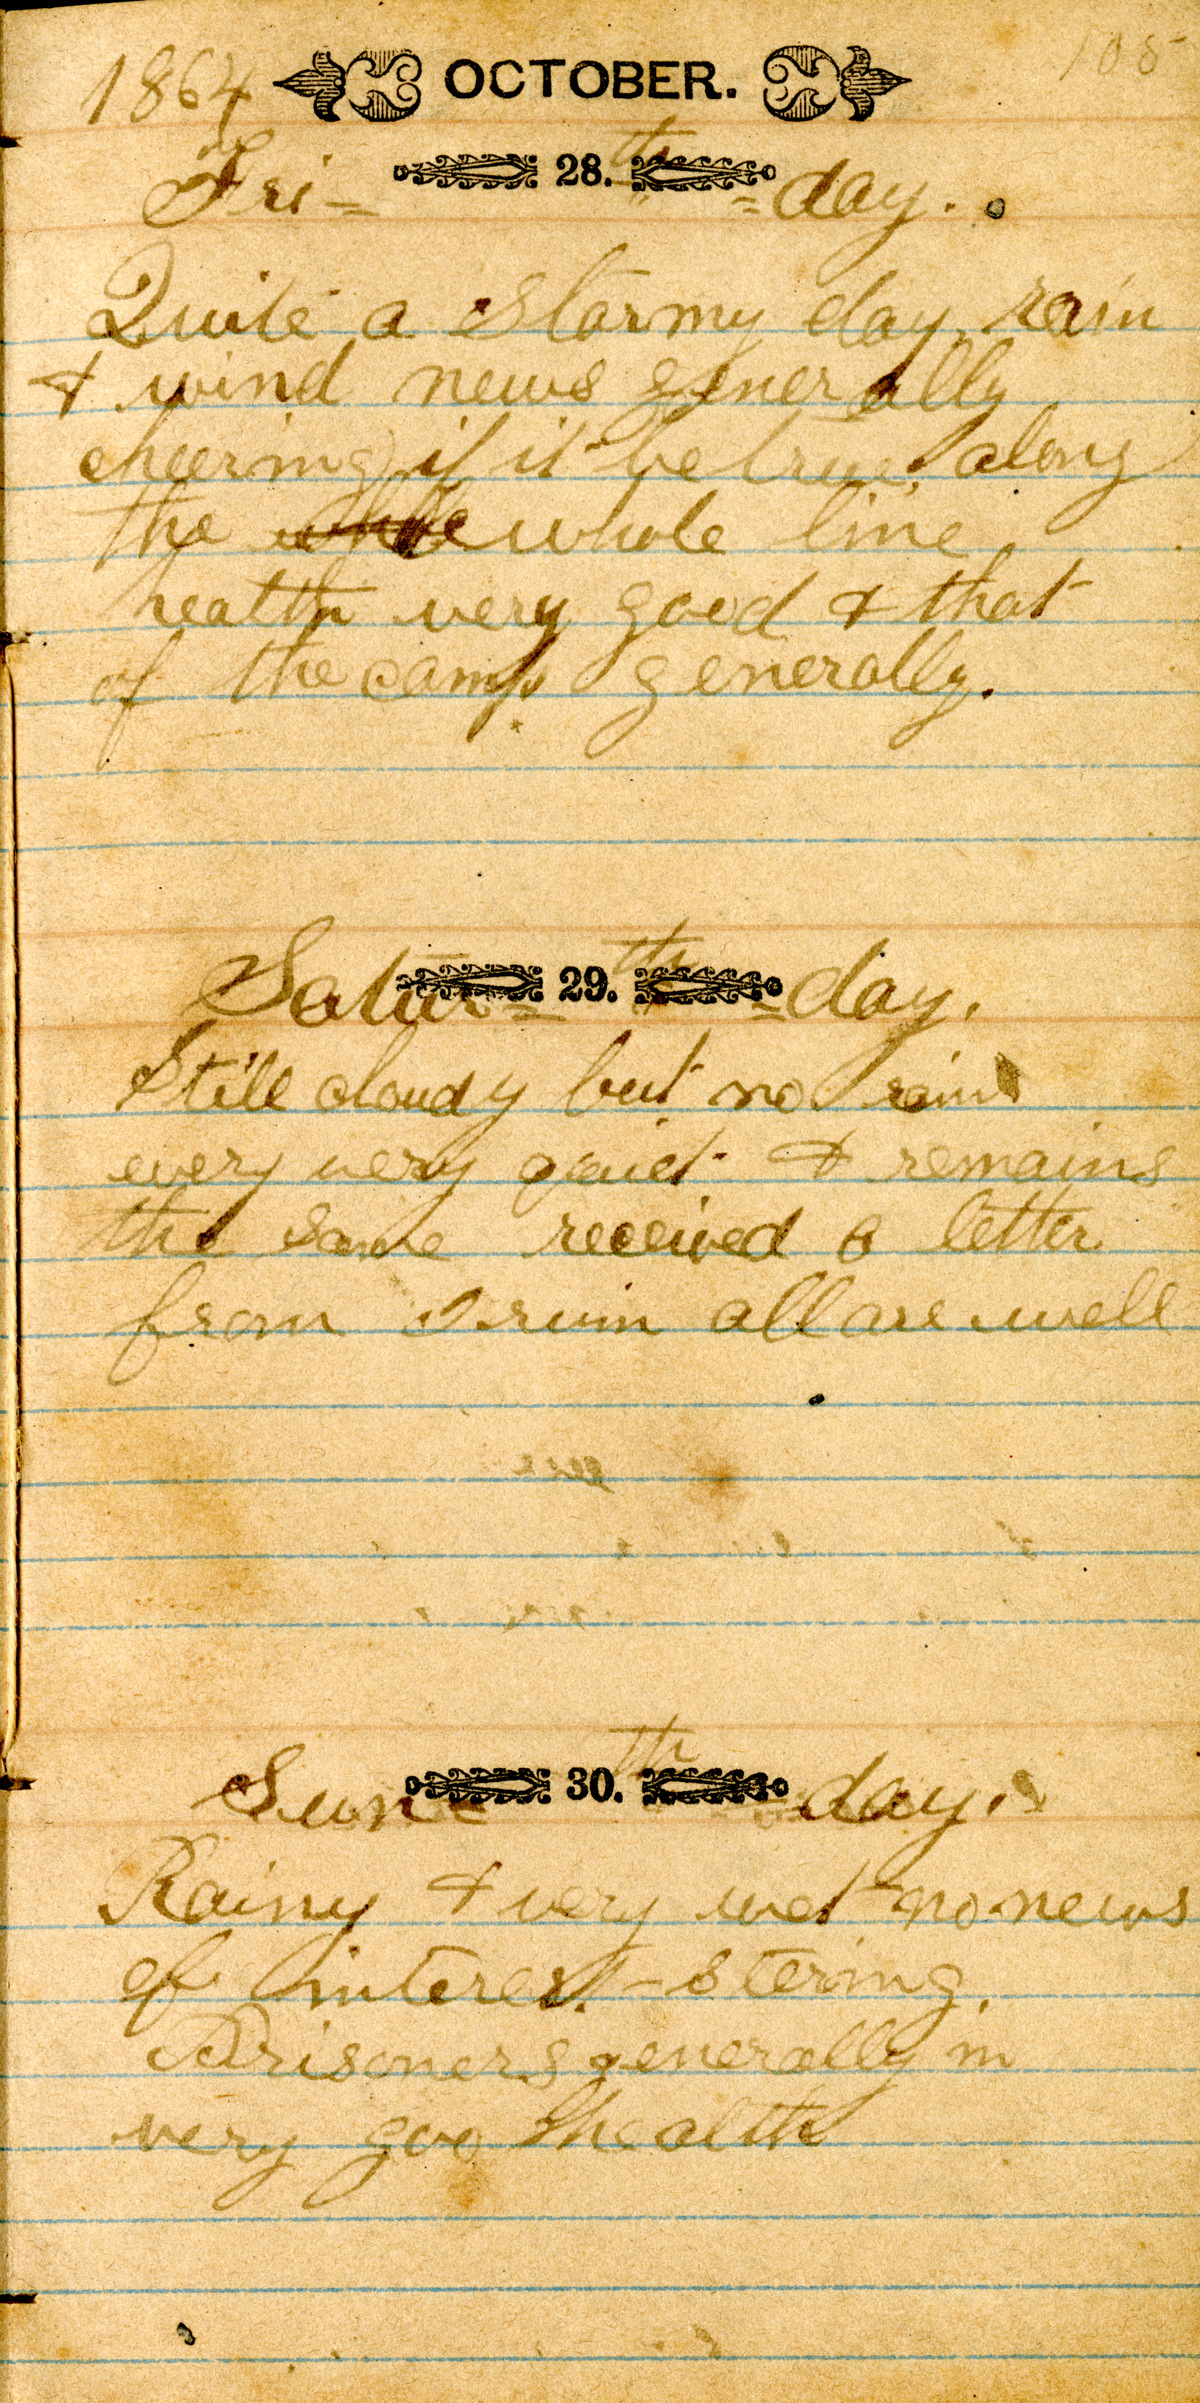 1864 OCTOBER. 105
Fri= 28.th =day.
Quite a stormy day, rain
& wind news generally
cheering if it be true along
the whole whole line
health very good & that
of the camp generally.
Satur= 29.th =day.
Still cloudy but no rain
every very quiet & remains
the same received a letter
from Irwin all are well
Sun= 30.th =day.
Rainy & very wet no news
of interest stering.
Prisoners generally in
very goo health